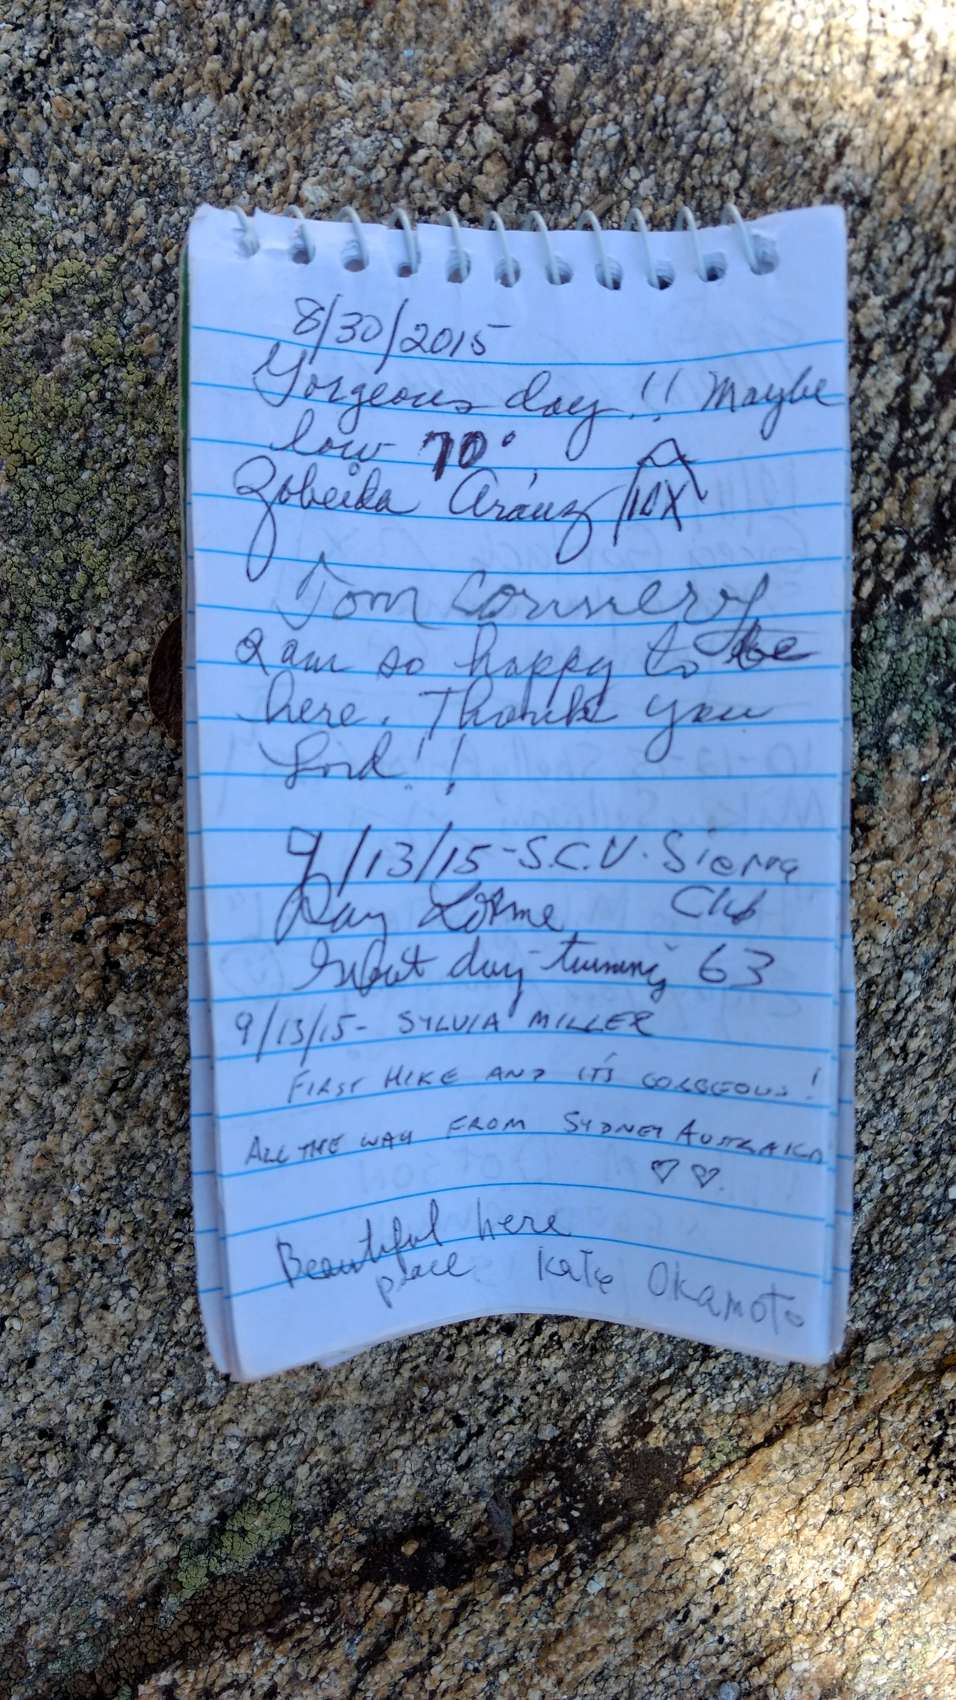 8/30/2015
Gorgeous day!! Maybe
low 70°
Zobeida Aráuz 10X
Tom Connery
I am so happy to be
here. Thank you
Lord!!
9/13/15 - S.C.V. Sierra
Ray Club
Great day - turning 63
9/13/15 - SYLVIA MILLER
FIRST HIKE AND IT'S GORGEOUS!
ALL THE WAY FROM SYDNEY AUSTRALIA
♡ ♡.
Beautiful here
place Kate Okamoto